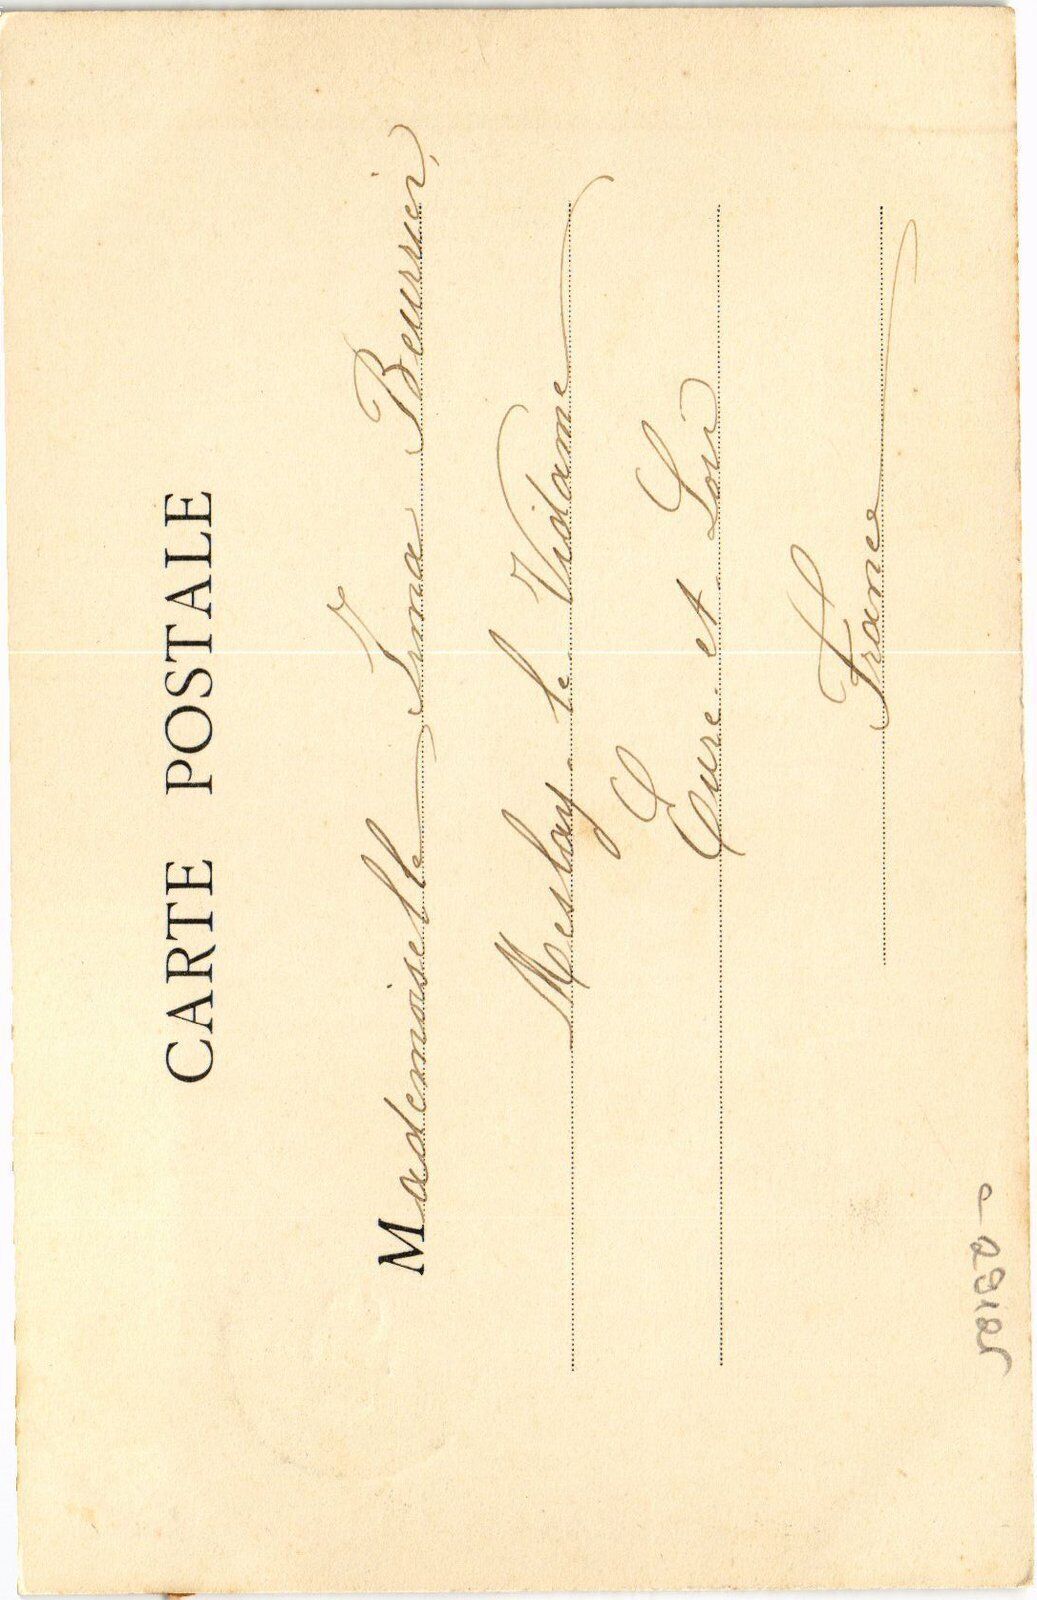 CARTE POSTALE
Mademoiselle Irma Beurrier,
Meslay-le-Vidame
Eure-et-Loir
France